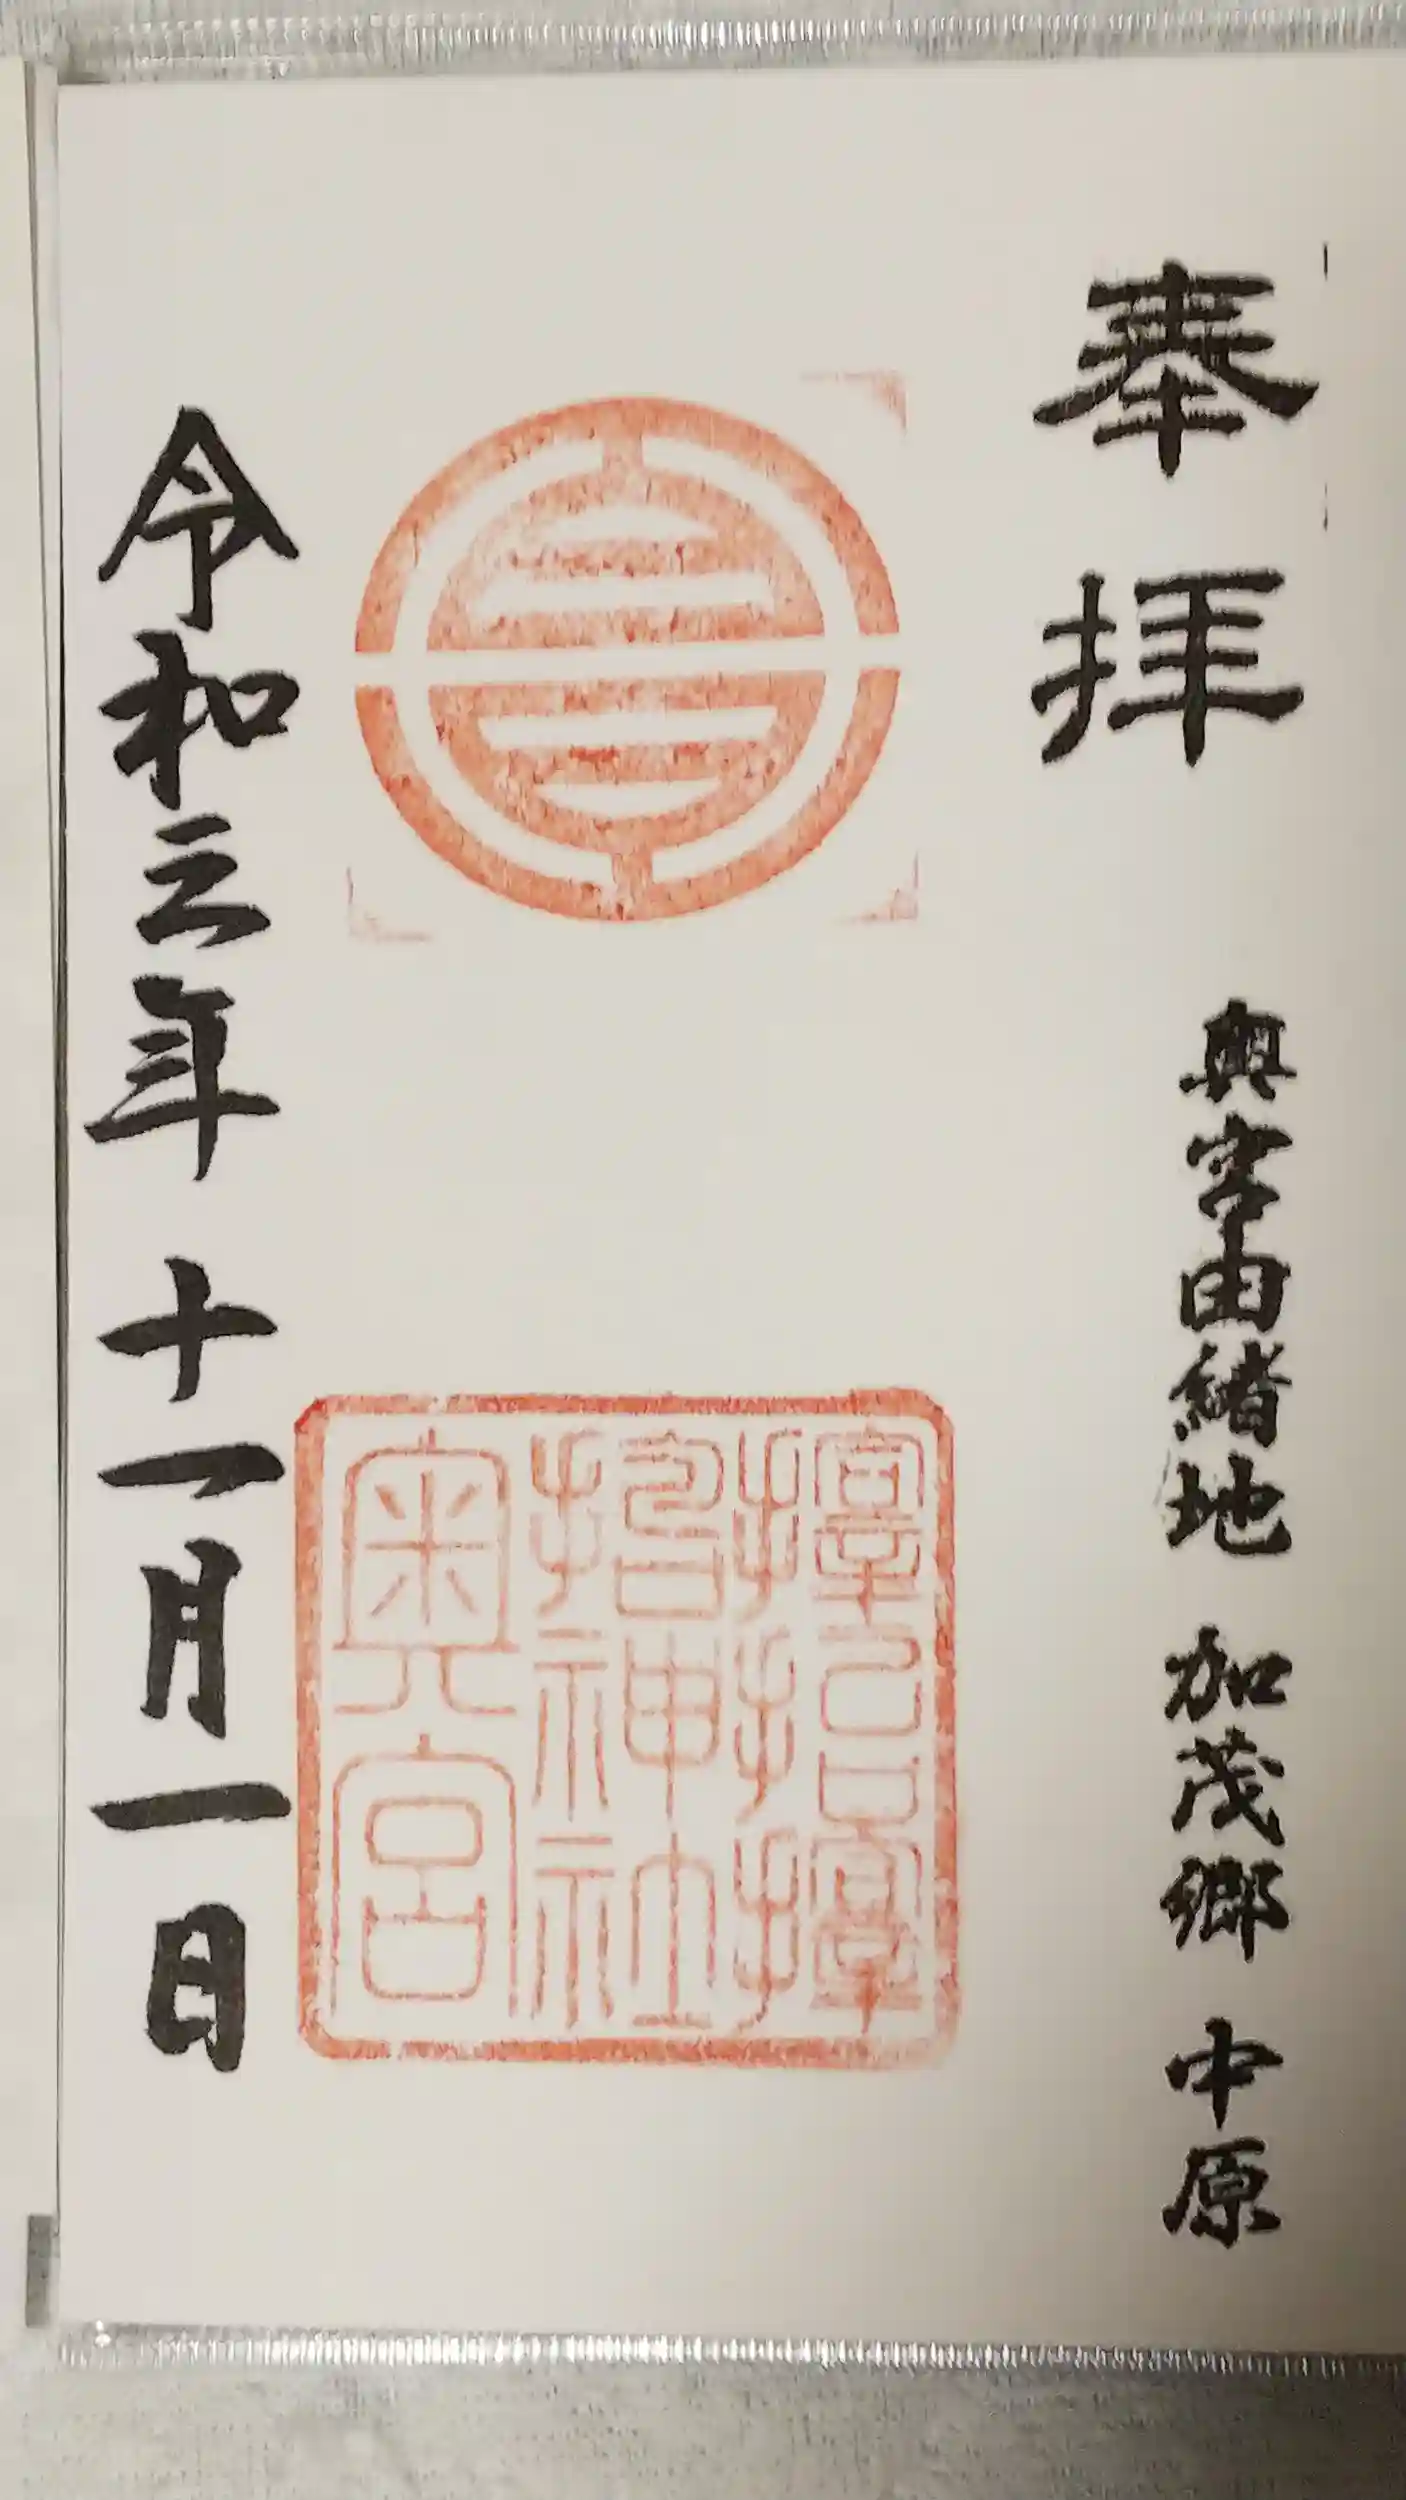 奉拝
奥宮由緒地 加茂郷 中原
神社
奥宮
令和三年十一月一日